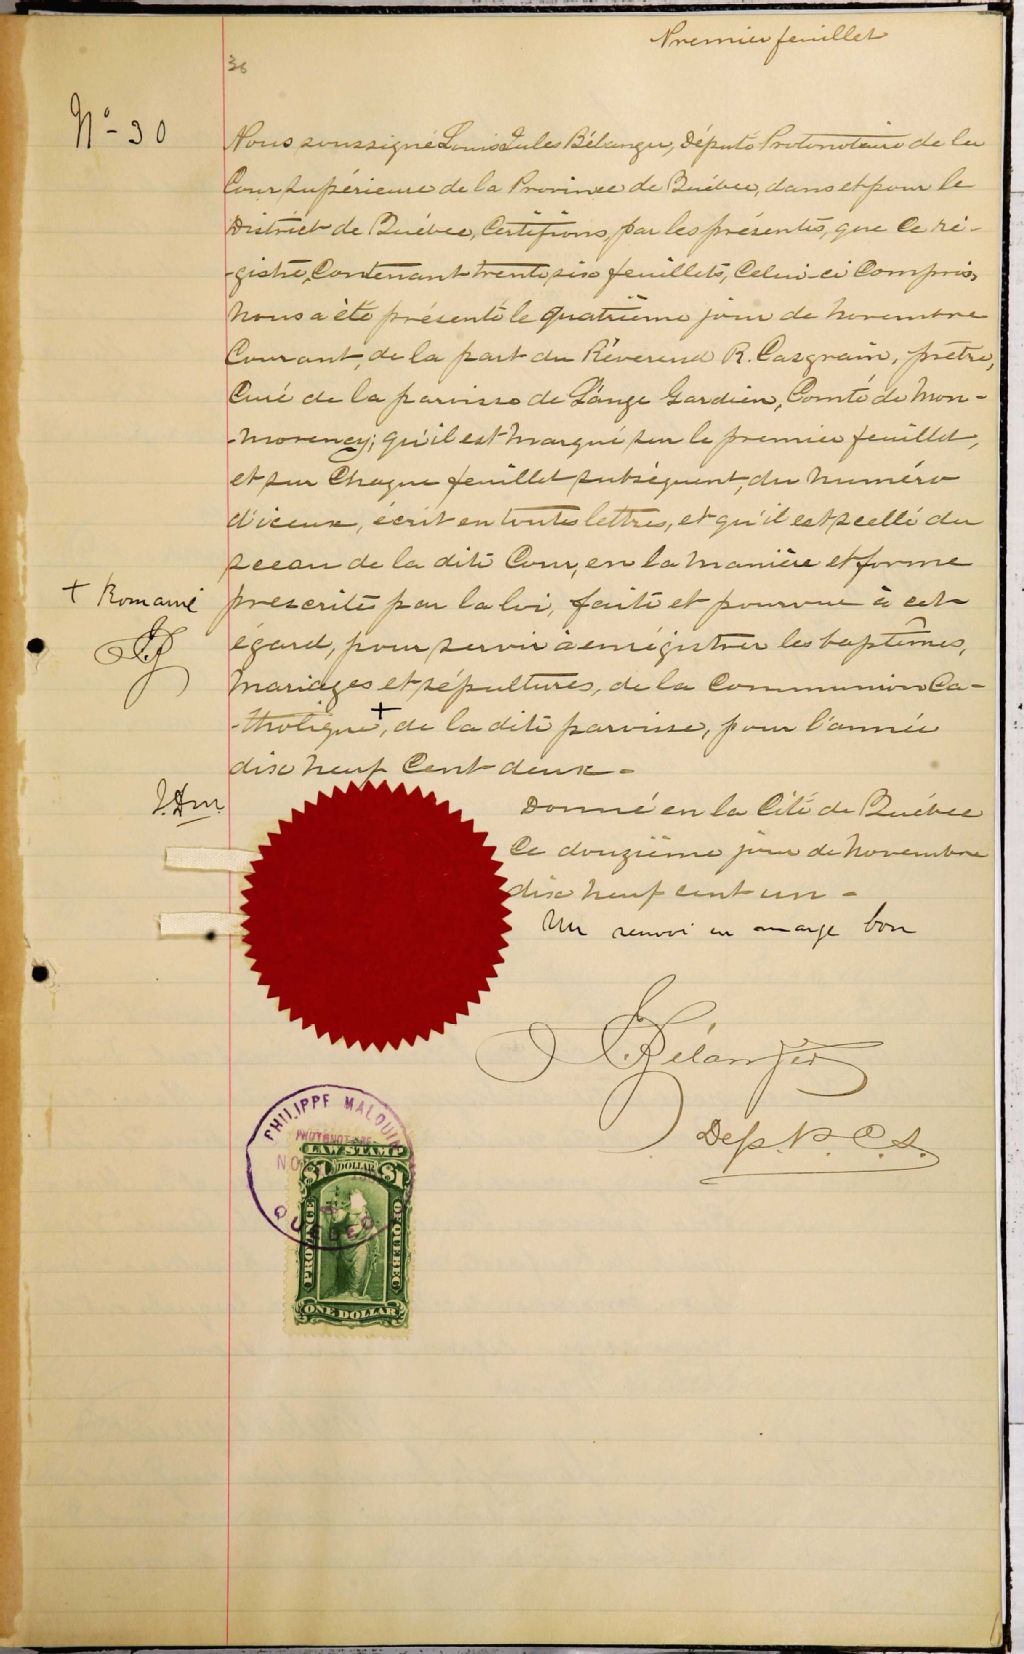 Premier feuillet
36
No- 30
Nous soussigné Louis Jules Bélanger, Député Protonotaire de la
Cour supérieure de la Province de Québec, dans et pour le
District de Québec, Certifions, par les présentes, que ce ré-
-gistre, Contenant trente six feuillets, Celui-ci Compris,
nous a été présenté le quatrième jour de novembre
Courant, de la part du Réverend R. Casgrain, prêtre,
Curé de la paroisse de L'Ange Gardien, Comté de Mon-
-morency; qu'il est marqué sur le premier feuillet,
et sur chaque feuillet subséquent, du numéro
d'iceux, écrit en toutes lettres, et qu'il est scellé du
sceau de la dite Cour, en la manière et forme
prescrite par la loi, faite et pourvue à cet
égard, pour servir à enrégistrer les baptêmes,
mariages et sépultures, de la Communion Ca-
-tholique +, de la dite paroisse, pour l'année
dix neuf Cent deux -
+ Romaine
Donné en la Cité de Québec
Ce douzième jour de novembre
dix neuf cent un -
Un renvoi en marge bon
Bélanger
Dep. P. C. S.
PHILIPPE MALOUIN
PROTONOTAIRE
NO
QUEBEC
LAW STAMP
$1 DOLLAR $1
PROVINCE
OF QUEBEC
ONE DOLLAR